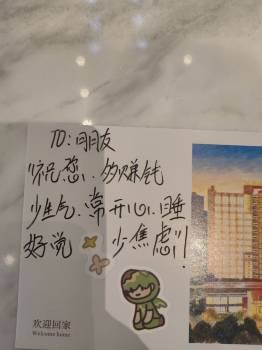 TO:朋友
祝您、多赚钱
少生气、常开心、睡
好觉 少焦虑!
欢迎回家
Welcome home